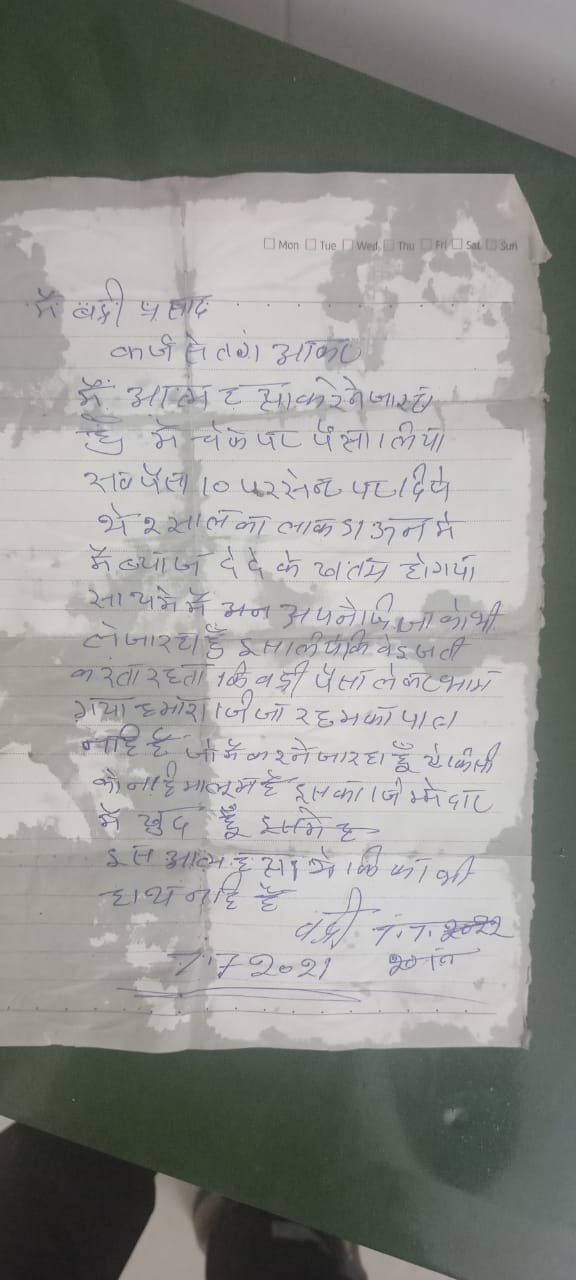 Mon Tue Wed Thu Fri Sat Sun
मैं बद्री प्रसाद
कर्ज से तंग आकर
मैं आत्म ह त्या करने जा रहा
हूँ मैं चेक पर पैसा लिया
सब पैसा 10 परसेन्ट पर दिये
थे 2 साल का लाक डाऊन मे
मैं ब्याज दे दे के खतम हो गया
साथ मे मैं अपने भी
ले जा रहा हूँ इसलिए कि बेइजती
करता रहता कि बद्री पैसा लेकर भाग
गया हमारा
नाहि है जो मैं करने जा रहा हूँ ये किसी
को नाहि मालूम है इसका जिम्मेदार
मैं खुद हूँ इसमे
इस आत्म हत्या मे किसी का भी
हाथ नाहि है
बद्री 7.7. 2022
7.7 2021